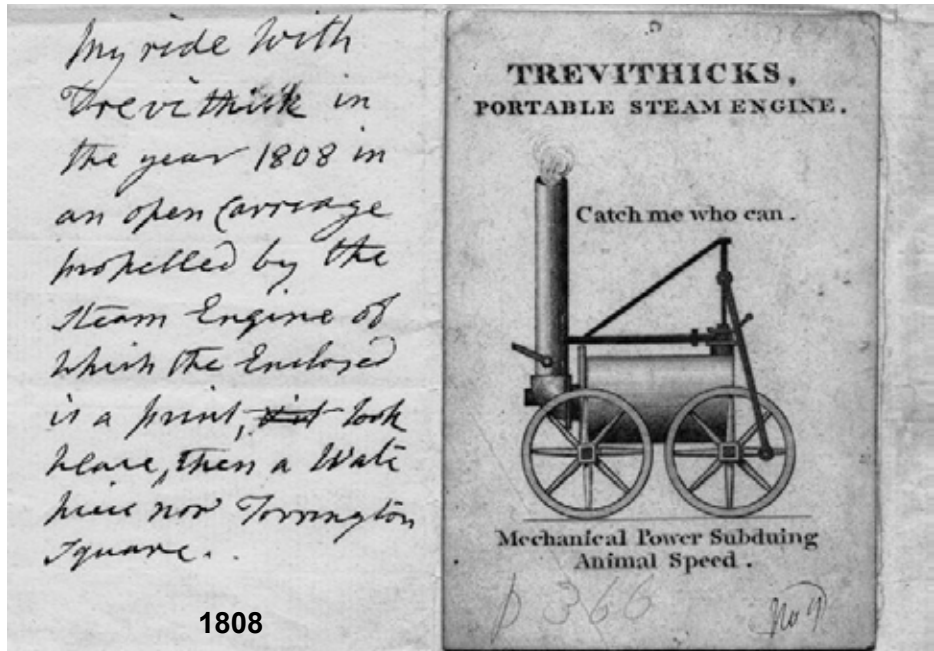 My ride with
Trevithick in
the year 1808 in
an open Carriage
propelled by the
steam Engine of
which the Enclosed
is a print, took
place, then a Waste
piece now Torrington
Square.
1808
TREVITHICKS,
PORTABLE STEAM ENGINE.
Catch me who can.
Mechanical Power Subduing
Animal Speed.
p 366
No 9